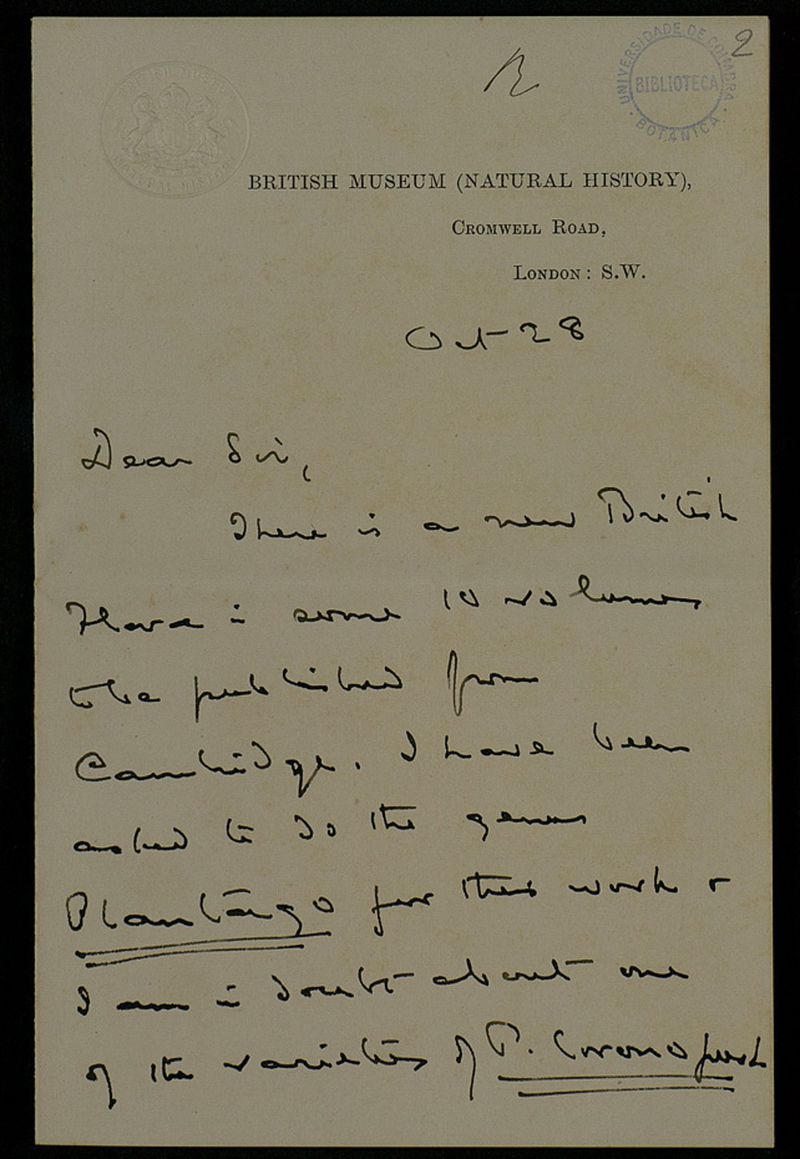 2
R
UNIVERSIDADE DE COIMBRA
BIBLIOTECA
BOTANICA
BRITISH MUSEUM
NATURAL HISTORY
BRITISH MUSEUM (NATURAL HISTORY),
CROMWELL ROAD,
LONDON: S.W.
Oct 28
Dear Sir,
There is a new British
Flora in some 10 volumes
to be published from
Cambridge. I have been
asked to do the genus
Plantago for this work &
I am in doubt about one
of the varieties of P. Coronopus L